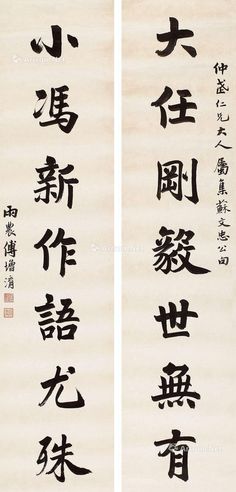 大任剛毅世無有
仲盛仁兄大人屬集蘇文忠公句
小馮新作語尤殊
雨農傅增淯